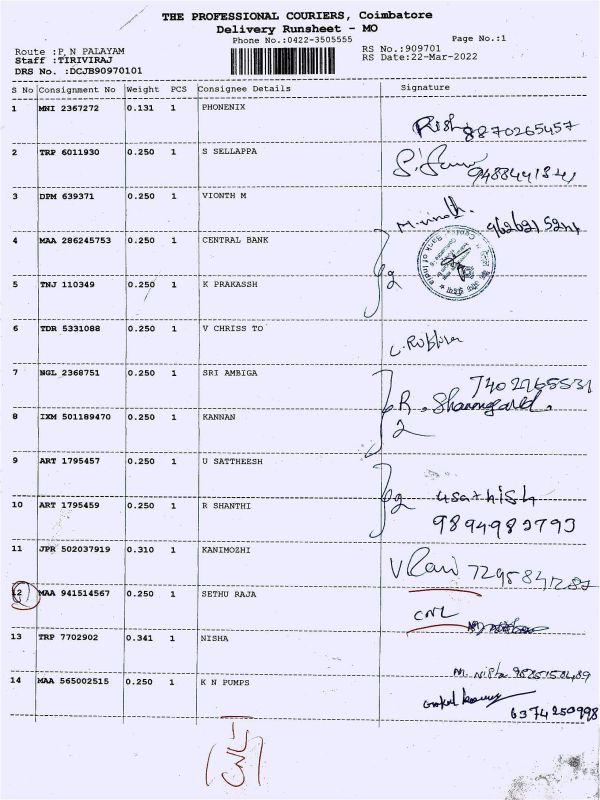 THE PROFESSIONAL COURIERS, Coimbatore
Delivery Runsheet - MO
Phone No.:0422-3505555
Page No.:1
Route :P, N PALAYAM
RS No.:909701
Staff :TIRIVIRAJ
RS Date:22-Mar-2022
DRS No. :DCJB90970101
S No Consignment No Weight PCS Consignee Details Signature
1 MNI 2367272 0.131 1 PHONENIX
8870265457
2 TRP 6011930 0.250 1 S SELLAPPA
3 DPM 639371 0.250 1 VIONTH M
M.vinoth.
4 MAA 286245753 0.250 1 CENTRAL BANK
2
5 TNJ 110349 0.250 1 K PRAKASSH
6 TDR 5331088 0.250 1 V CHRISS TO
7 NGL 2368751 0.250 1 SRI AMBIGA
7402765531
8 IXM 501189470 0.250 1 KANNAN
2
9 ART 1795457 0.250 1 U SATTHEESH
2 usathish
10 ART 1795459 0.250 1 R SHANTHI
9894982793
11 JPR 502037919 0.310 1 KANIMOZHI
12 MAA 941514567 0.250 1 SETHU RAJA
CNL
13 TRP 7702902 0.341 1 NISHA
M. Nisha
14 MAA 565002515 0.250 1 K N PUMPS
6374250998
CNL